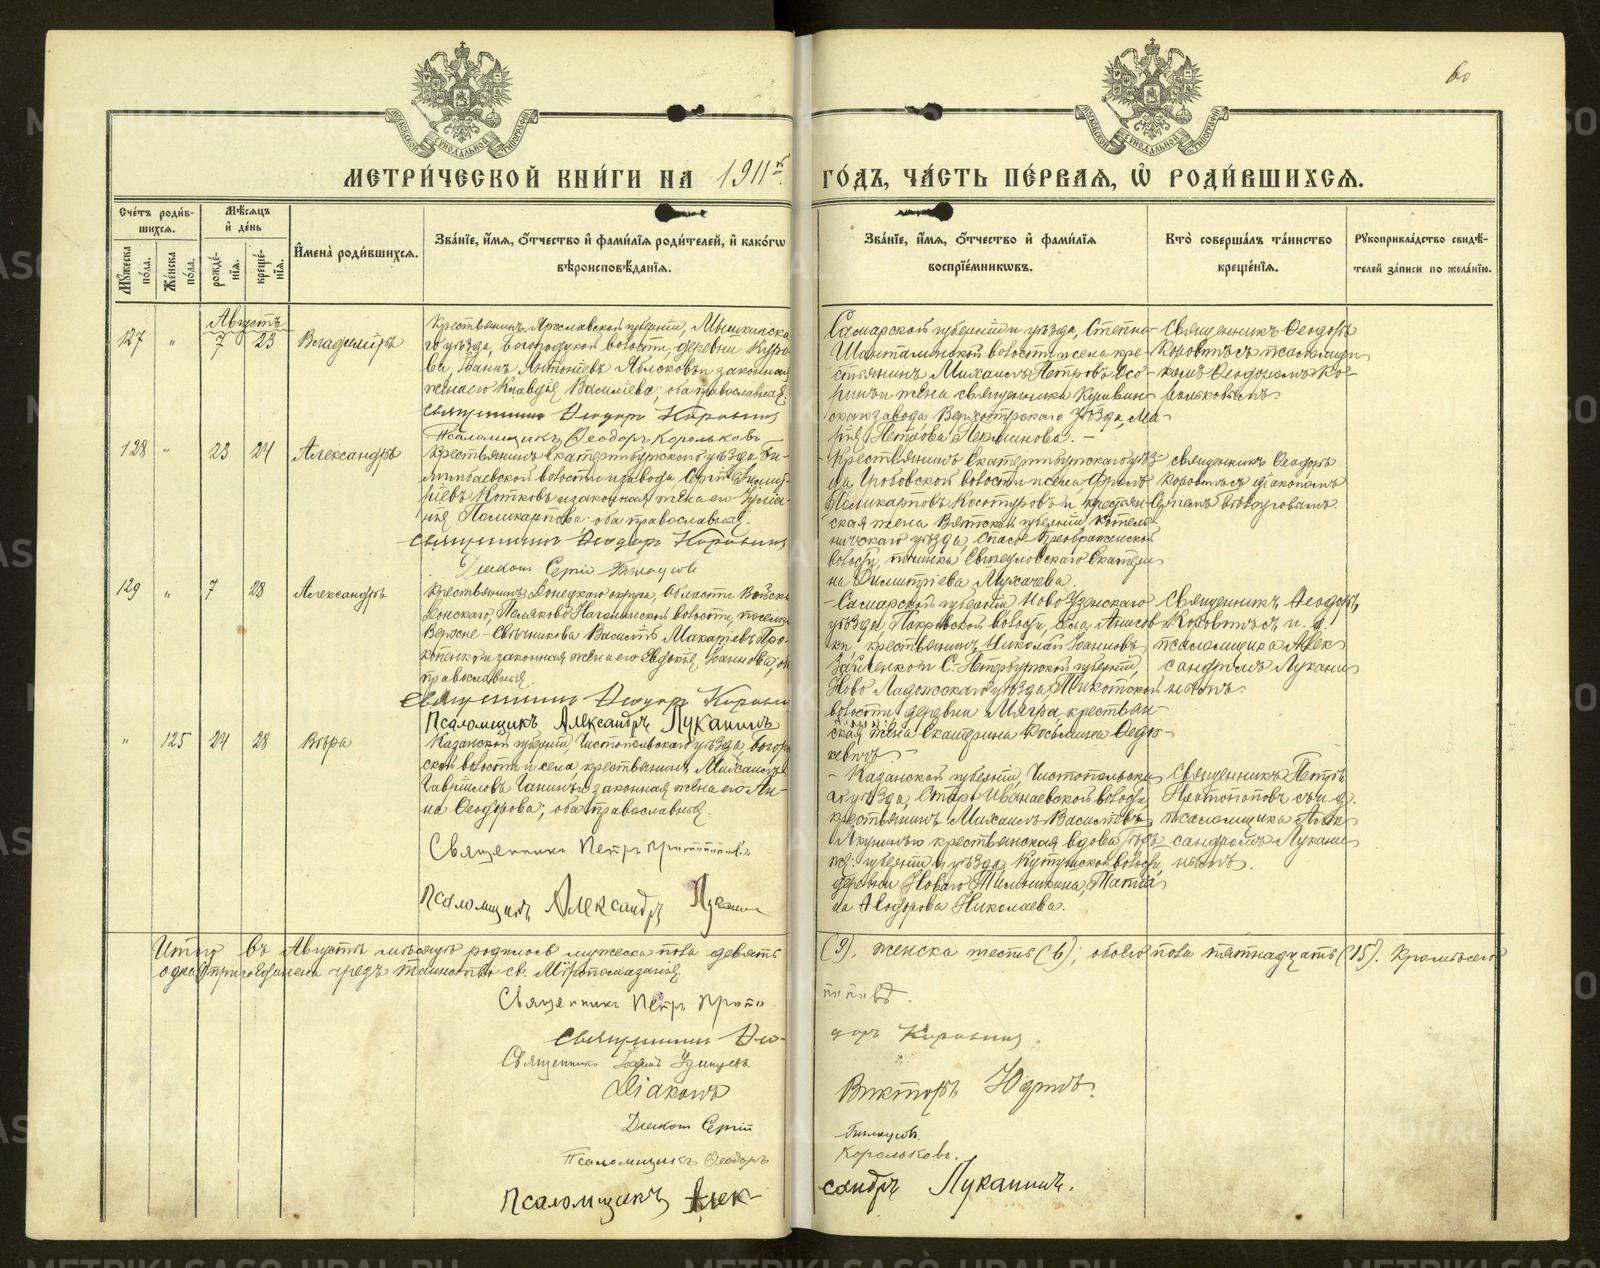 60
МЕТРИ́ЧЕСКОЙ КНИ́ГИ НА 1911й ГО́ДЪ, ЧА́СТЬ ПЕ́РВАЯ, Ѡ҆ РОДИ́ВШИХСЯ.
Сче́тъ роди́вшихся.
Мѣ́сяцъ и҆ де́нь
И҆мена̀ роди́вшихся.
Зва́нїе, и҆́мя, ѻ҆́тчество и҆ фами́лїя роди́телей, и҆ како́гѡ
вѣроисповѣ́данїя.
Зва́нїе, и҆́мя, ѻ҆́тчество и҆ фами́лїя
воспрїе́мникѡвъ.
Кто̀ соверша́лъ та́инство
креще́нїя.
Рꙋкоприкла́дство свидѣ́-
телей за́писи по жела́нїю.
Мꙋ́жеска по́ла.
Же́нска по́ла.
рожде́нїя.
креще́нїя.
Августъ
127 " 7 23 Владиміръ
Крестьянинъ Ярославской губерніи, Мышкинска
го уѣзда, Богородской волости, деревни
Іоаннъ Антоніевъ Яблоковъ и законная
жена его Клавдія Василіева; оба православные.
Священникъ Ѳеодоръ Коровинъ
Псаломщикъ Ѳеодоръ Корольковъ
Самарской губерніи и уѣзда, Степно-
Шанталинской волости и села кре-
стьянинъ Михаилъ Петровъ
и жена священника Кушвин
скаго завода Верхотурскаго уѣзда, Ма-
рія Петрова Перминова. –
Священникъ Ѳеодоръ
Коровинъ съ псаломщи
комъ Ѳеодоромъ Ко-
рольковымъ
128 " 23 24 Александръ
Крестьянинъ Екатеринбургскаго уѣзда Би-
лимбаевской волости и завода Сергій Димит
ріевъ Котковъ и законная жена его Іуліа-
нія Поликарпова оба православные.
Священникъ Ѳеодоръ Коровинъ
Діаконъ Сергій
Крестьянинъ Екатеринбургскаго уѣз
да волости и села
Поликарповъ и крестьян
ская жена Вятской губерніи Котель
ническаго уѣзда, Спасо-Преображенской
волости, починка Екатери
на Димитріева Мухачева.
священникъ Ѳеодоръ
Коровинъ съ діакономъ
Сергіемъ
129 " 7 28 Александръ
Крестьянинъ Донецкаго округа, Области Войска
Донскаго, волости, поселка
Верхне- Василій Макаріевъ Про-
копенко и законная жена его Евдокія Іоаннова, оба
православные.
Священникъ Ѳеодоръ Коровинъ
Псаломщикъ Александръ Луканинъ
– Самарской губерніи Ново Узенскаго
уѣзда, Покровской волости, села
крестьянинъ Николай Іоанновъ
и С.-Петербургской губерніи,
Ново Ладожскаго уѣзда,
волости, деревни крестьян-
ская жена Екатерина Косьмина Федю-
кевичъ –
Священникъ Ѳеодоръ
Коровинъ съ и. д.
псаломщика Алек
сандромъ Лукани
нымъ.
" 125 24 28 Вѣра
Казанской губерніи, Чистопольскаго уѣзда,
ской волости и села, крестьянинъ Михаилъ
Гавриловъ и законная жена его Ан-
на Ѳеодорова; оба православные.
Священникъ Петръ Протопоповъ
Псаломщикъ Александръ Луканинъ
– Казанской губерніи, Чистопольска
го уѣзда, Старо Иванаевской волости,
крестьянинъ Михаилъ Василіевъ
и крестьянская вдова той
же губерніи и уѣзда, Кутушской волости,
деревни Новаго Татіа
на Ѳеодорова Николаева.
Священникъ Петръ
Протопоповъ съ и. д.
псаломщика Алек
сандромъ Лукани
нымъ.
Итого въ Августѣ мѣсяцѣ родилось мужеска пола девять (9), женска шесть (6); обоего пола пятнадцать (15). Кромѣ сего
одна присоединена чрезъ таинство св. Мѵропомазанія
Священникъ Петръ Протопоповъ.
Священникъ Ѳеодоръ Коровинъ.
Священникъ
Діаконъ Викторъ Юдинъ.
Діаконъ Сергій
Псаломщикъ Ѳеодоръ Корольковъ.
Псаломщикъ Александръ Луканинъ.